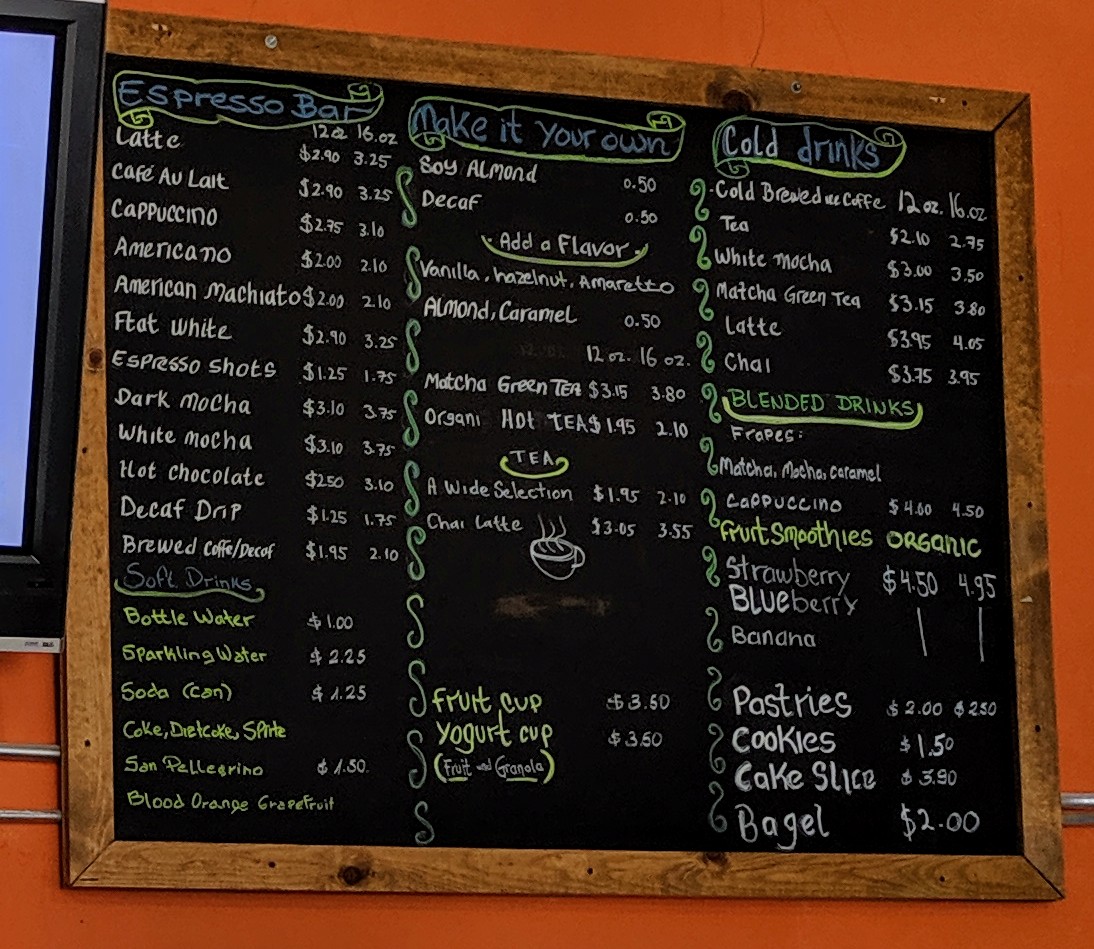 Espresso Bar
12oz 16.oz
Latte $2.90 3.25
Café Au Lait $2.90 3.25
Cappuccino $2.75 3.10
Americano $2.00 2.10
American Machiato $2.00 2.10
Flat White $2.90 3.25
Espresso Shots $1.25 1.75
Dark Mocha $3.10 3.75
White Mocha $3.10 3.75
Hot Chocolate $250 3.10
Decaf Drip $1.25 1.75
Brewed Coffe/Decaf $1.95 2.10
Soft Drinks
Bottle Water $1.00
Sparkling Water $2.25
Soda (can) $1.25
Coke, Dietcoke, Sprite
San Pellegrino $1.50
Blood Orange Grapefruit
Make it Your own
Soy Almond 0.50
Decaf 0.50
Add a Flavor
Vanilla, hazelnut, Amaretto
Almond, Caramel 0.50
12 oz. 16 oz.
Matcha Green TEA $3.15 3.80
Organi Hot TEA $1.95 2.10
TEA
A Wide Selection $1.95 2.10
Chai Latte $3.05 3.55
Fruit cup $3.50
Yogurt cup $3.50
(Fruit and Granola)
Cold drinks
Cold Brewed Coffe 12oz. 16.oz
Tea $2.10 2.75
White Mocha $3.00 3.50
Matcha Green Tea $3.15 3.80
Latte $3.95 4.05
Chai $3.75 3.95
BLENDED DRINKS
Frapes:
Matcha, Mocha, caramel
Cappuccino $4.00 4.50
Fruit Smoothies ORGANIC
Strawberry $4.50 4.95
BLUEberry
Banana
Pastries $2.00 $250
Cookies $1.50
Cake Slice $3.90
Bagel $2.00